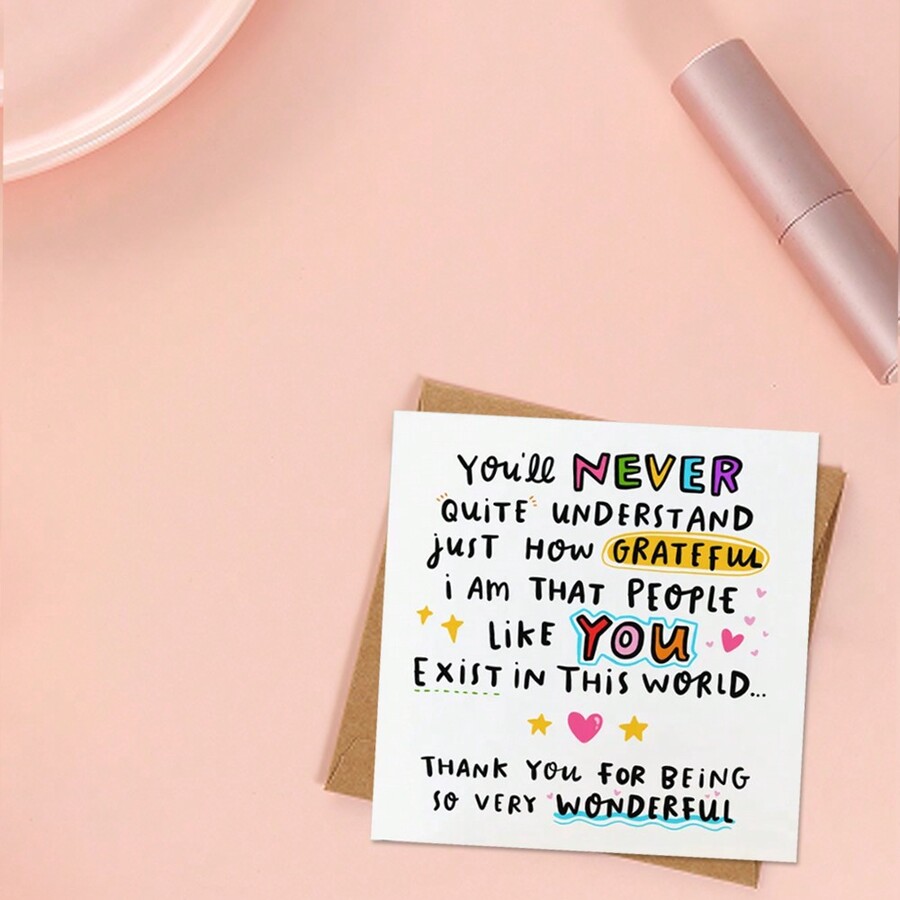 You'll NEVER
"QUiTE" UNDERSTAND
jUST HOW GRATEFUL
i AM THAT PEOPLE
LiKE YOU
EXiST iN THiS WORLD...
THANK YOU FOR BEiNG
SO VERY WONDERFUL